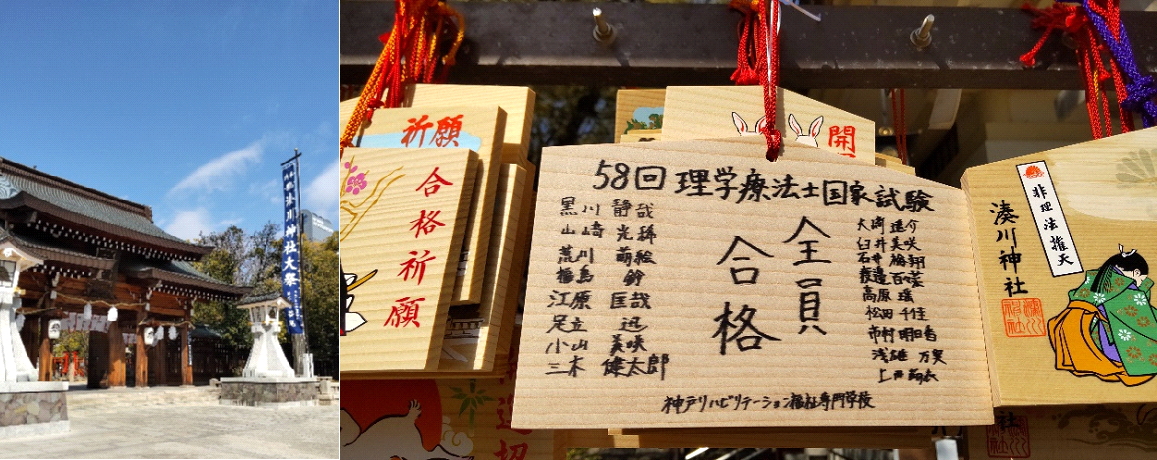 湊川神社大祭
祈願
合格祈願
開
58回 理学療法士国家試験
全員
合格
黒川 静哉
山崎 光稀
荒川 萌絵
福島 鈴
江原 匡哉
足立 迅
小山 美咲
三木 健太郎
臼井 美咲
渡邉 百菜
高原 瑶
松田 千佳
市村 明日香
神戸リハビリテーション福祉専門学校
非理法権天
湊川神社